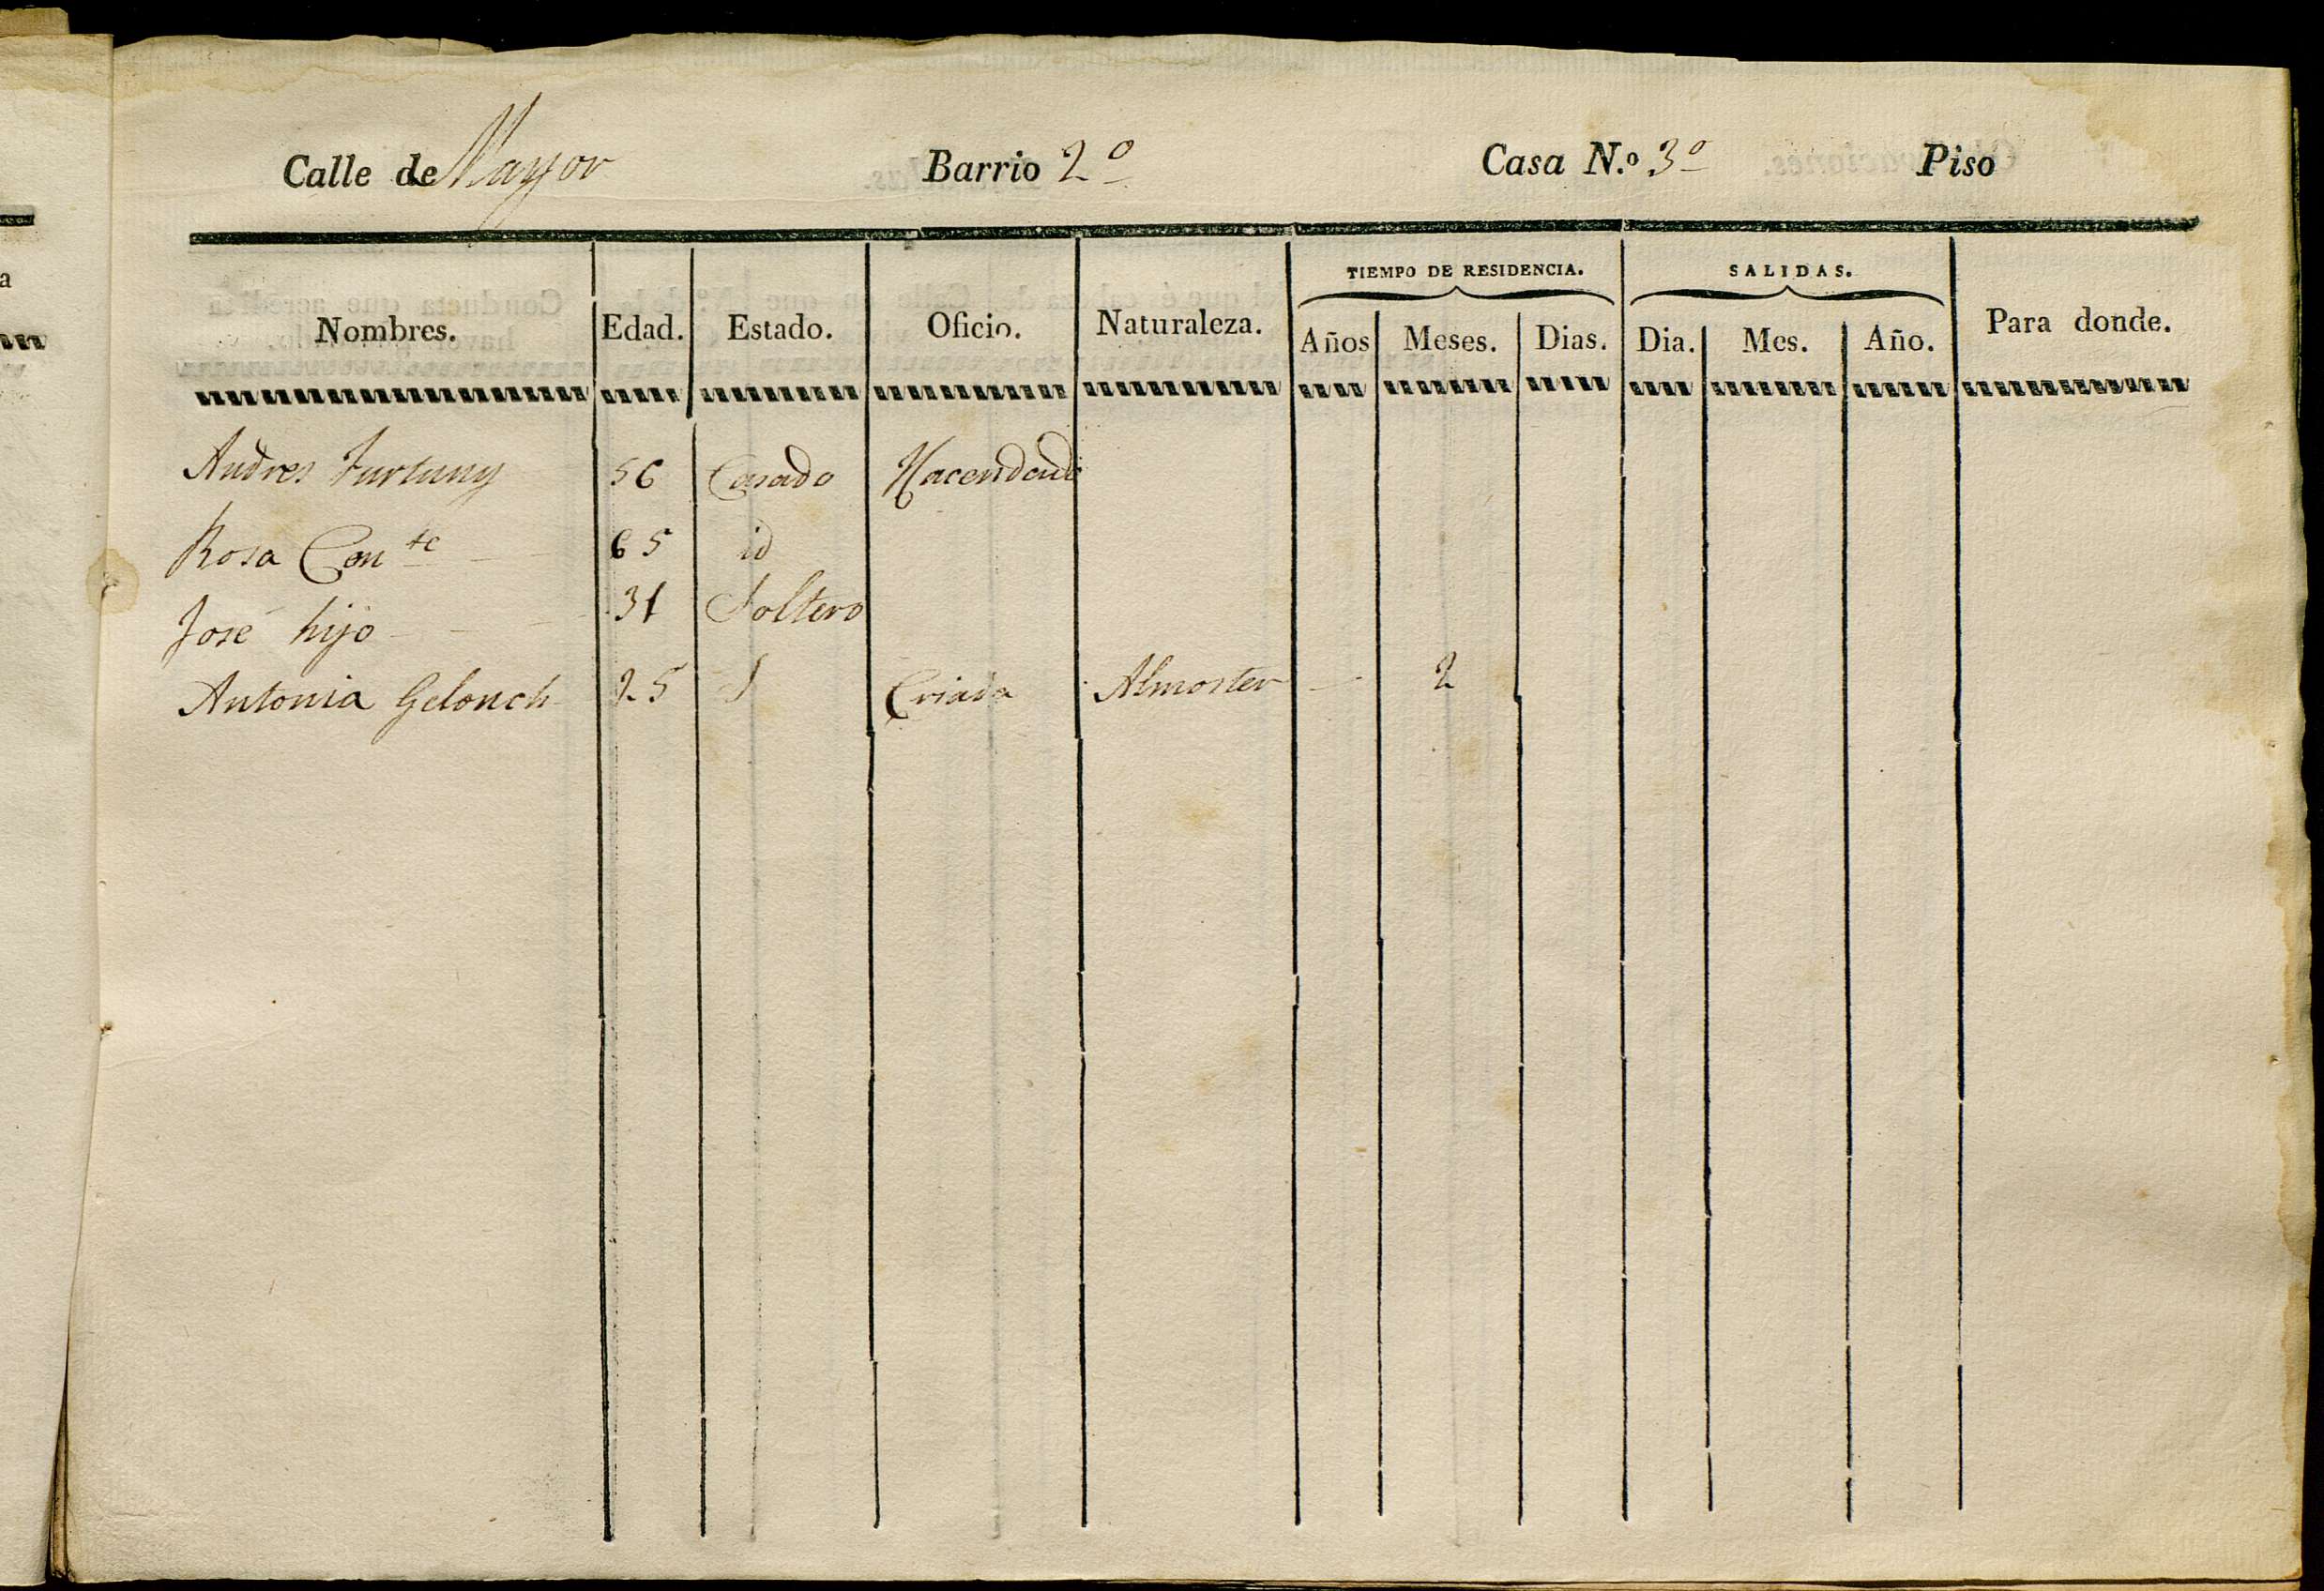 Calle de Mayor Barrio 2º Casa N.º 3º Piso
TIEMPO DE RESIDENCIA. SALIDAS.
Nombres. Edad. Estado. Oficio. Naturaleza. Años Meses. Dias. Dia. Mes. Año. Para donde.
Andres Furtuny 56 Casado Hacendado
Rosa Con.te 65 id
José hijo 31 Soltero
Antonia Gelonch 25 S Criada Almoster 2